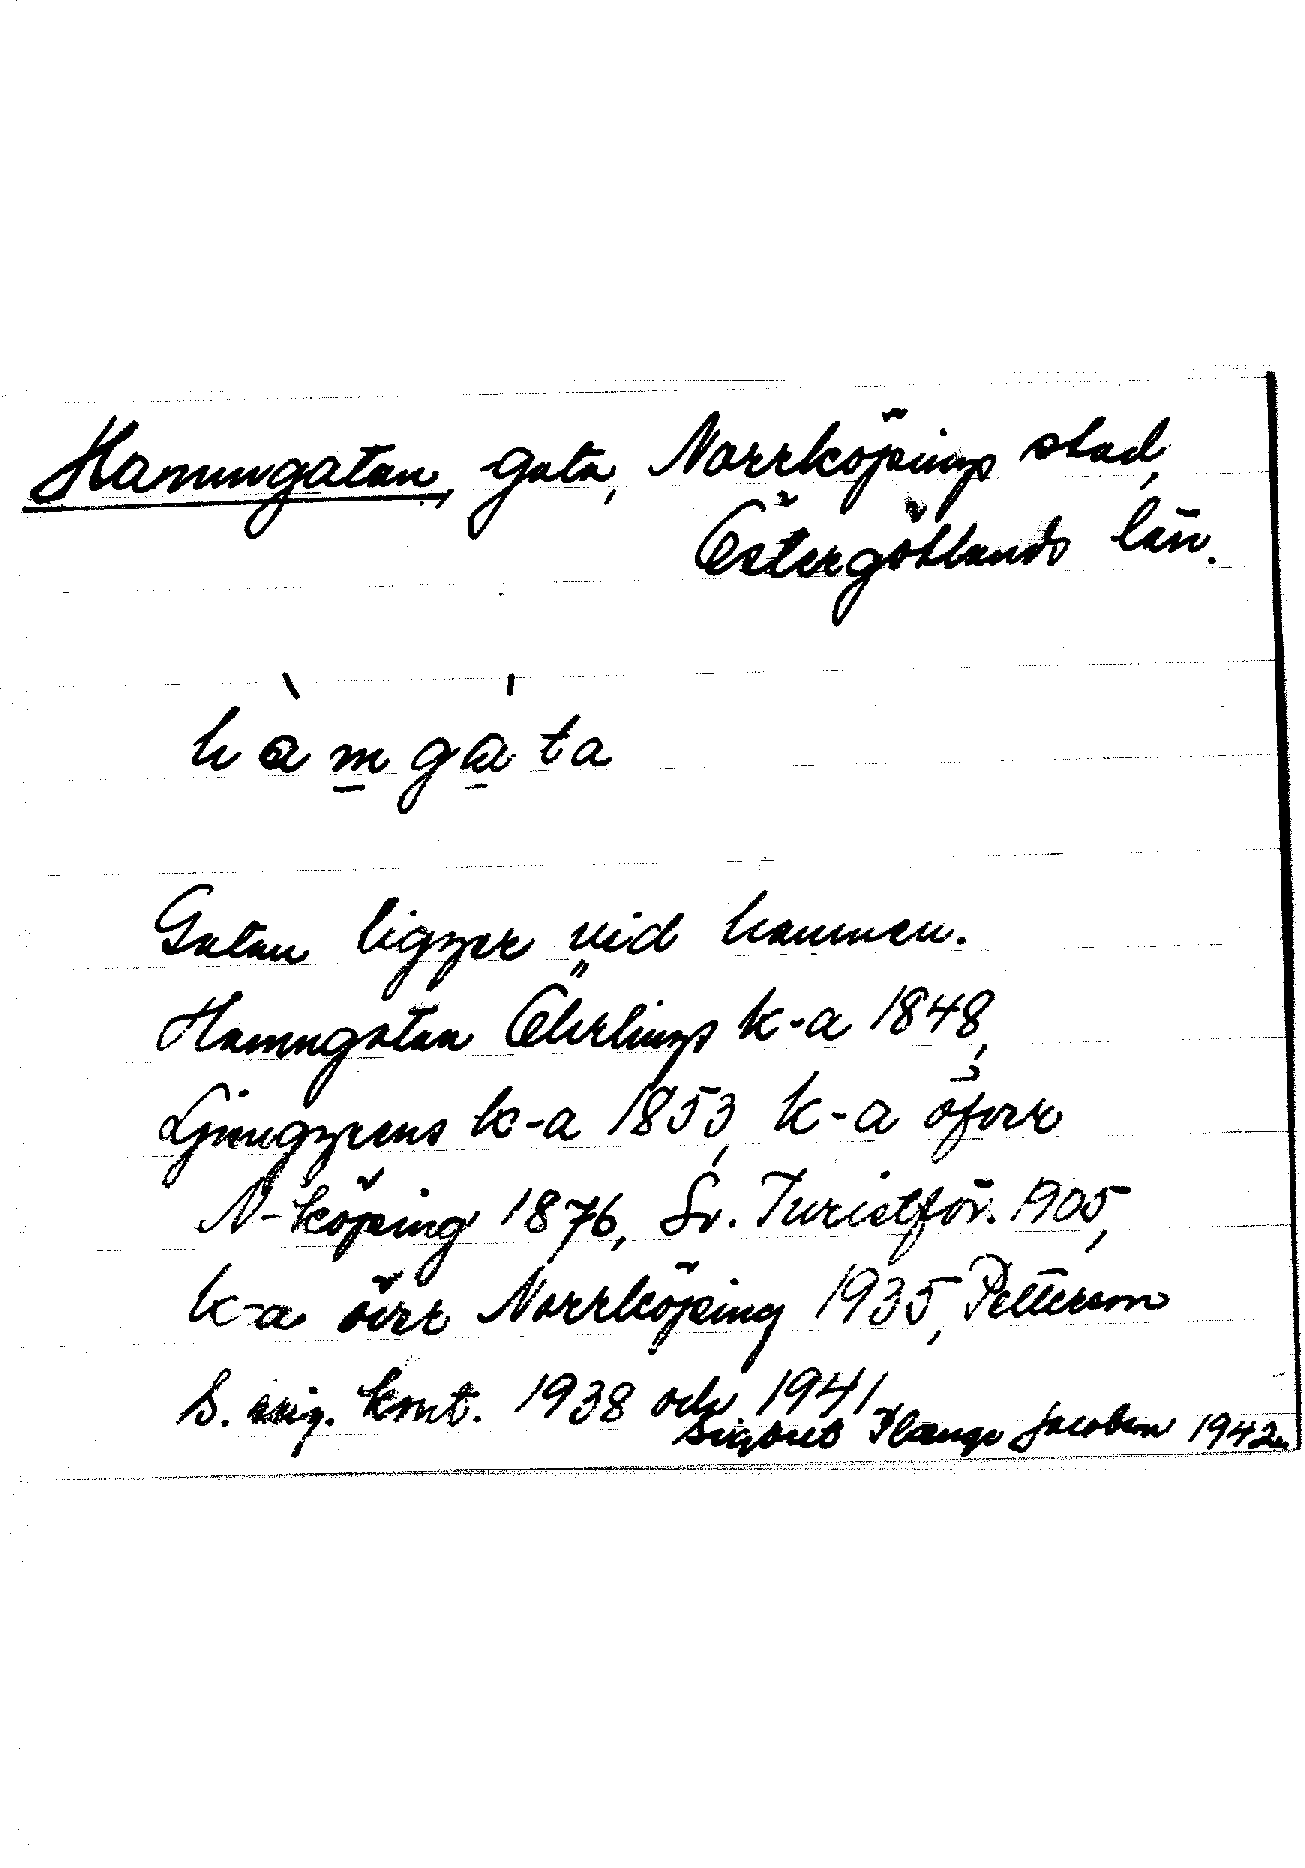 Hamngatan, gata, Norrköpings stad,
Östergötlands län.
hàmgáta
Gatan ligger vid hamnen.
Hamngatan Öhrlings k-a 1848,
Ljunggrens k-a 1853, k-a öfver
N-köping 1876, Sv. Turistför. 1905,
k-a över Norrköping 1935, Petterson
S. ing. kont. 1938 och 1941
Sigbrit Plænge Jacobson 1942